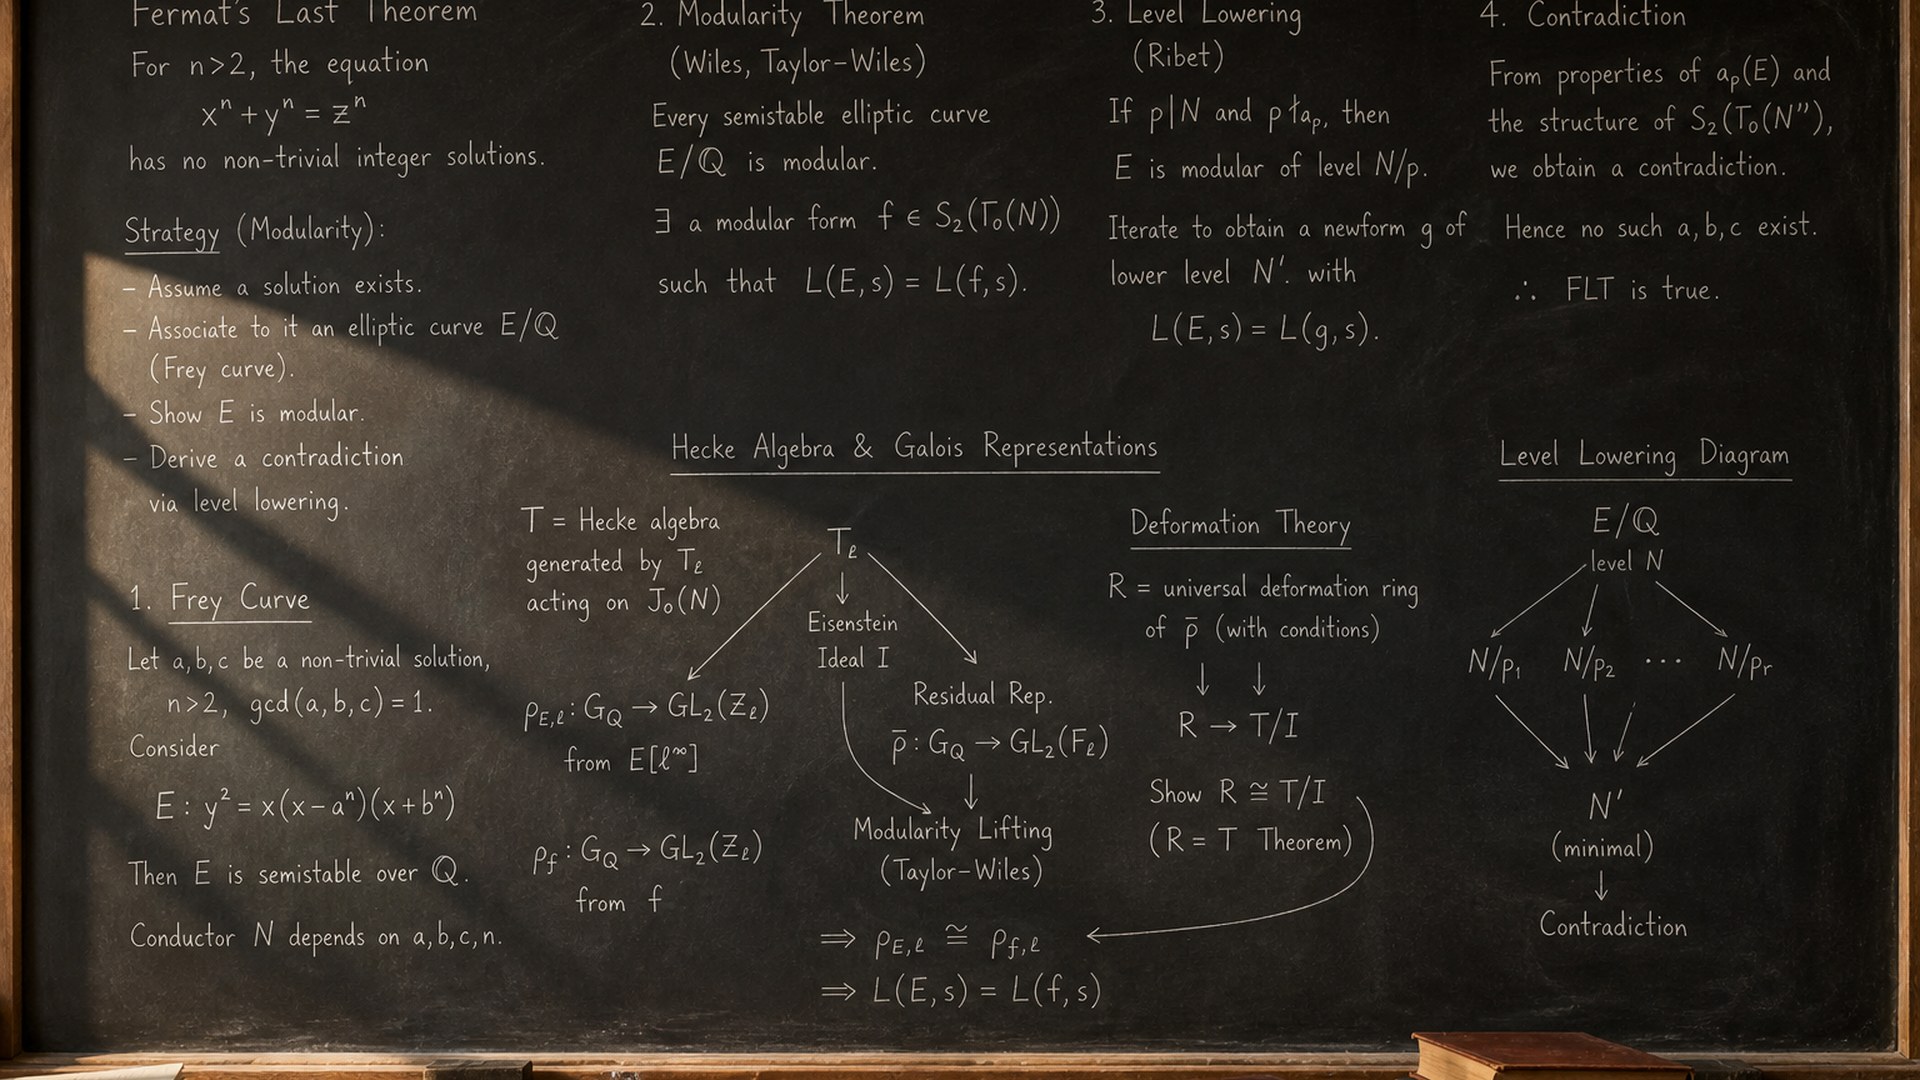 Fermat's Last Theorem
For n>2, the equation
xⁿ + yⁿ = zⁿ
has no non-trivial integer solutions.
Strategy (Modularity):
– Assume a solution exists.
– Associate to it an elliptic curve E/ℚ
(Frey curve).
– Show E is modular.
– Derive a contradiction
via level lowering.
1. Frey Curve
Let a,b,c be a non-trivial solution,
n>2, gcd(a,b,c)=1.
Consider
E: y² = x(x−aⁿ)(x+bⁿ)
Then E is semistable over ℚ.
Conductor N depends on a,b,c,n.
2. Modularity Theorem
(Wiles, Taylor–Wiles)
Every semistable elliptic curve
E/ℚ is modular.
∃ a modular form f ∈ S₂(T₀(N))
such that L(E,s) = L(f,s).
3. Level Lowering
(Ribet)
If p|N and p∤aₚ, then
E is modular of level N/p.
Iterate to obtain a newform g of
lower level N'. with
L(E,s) = L(g,s).
4. Contradiction
From properties of aₚ(E) and
the structure of S₂(T₀(N'')),
we obtain a contradiction.
Hence no such a,b,c exist.
∴ FLT is true.
Hecke Algebra & Galois Representations
T = Hecke algebra
generated by T_ℓ
acting on J₀(N)
T_ℓ
Eisenstein
Ideal I
ρ_E,ℓ : G_Q → GL₂(Z_ℓ)
from E[ℓ^∞]
ρ_f : G_Q → GL₂(Z_ℓ)
from f
Residual Rep.
ρ̄ : G_Q → GL₂(F_ℓ)
Modularity Lifting
(Taylor–Wiles)
⇒ ρ_E,ℓ ≅ ρ_f,ℓ
⇒ L(E,s) = L(f,s)
Deformation Theory
R = universal deformation ring
of ρ̄ (with conditions)
R → T/I
Show R ≅ T/I
(R = T Theorem)
Level Lowering Diagram
E/ℚ
level N
N/p₁ N/p₂ ··· N/pᵣ
N'
(minimal)
Contradiction